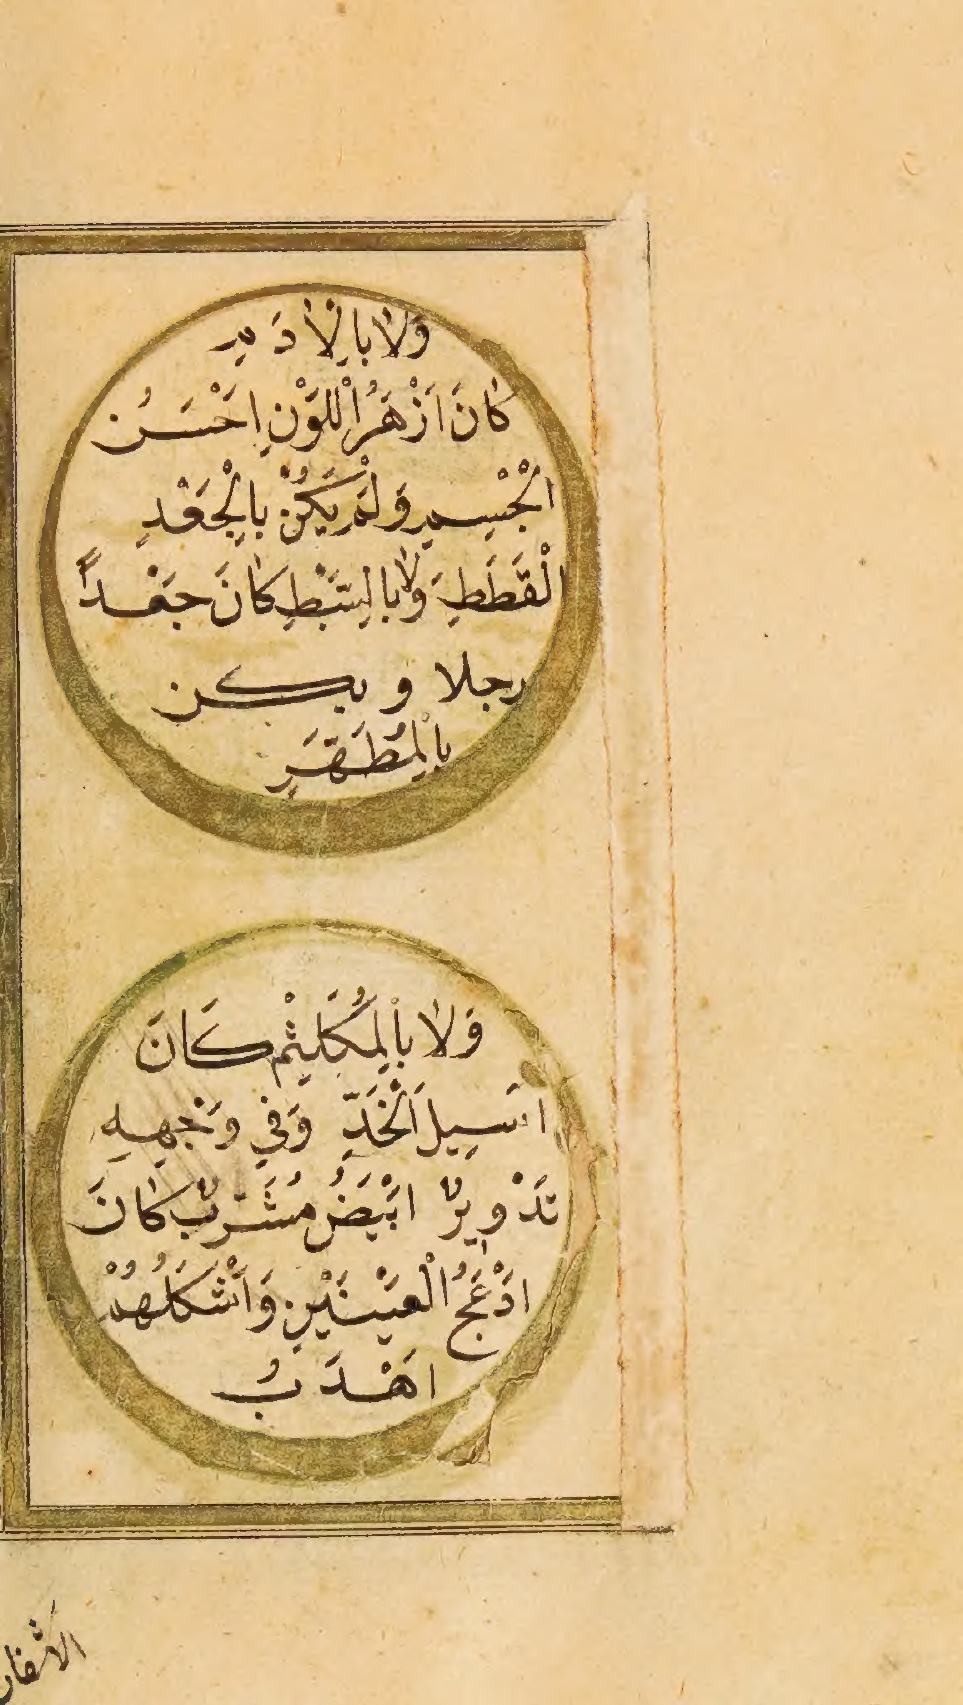 وَلَا بِالْاٰدَمِ
كَانَ اَزْهَرُ اللَّوْنِ اَحْسَنُ
الْجِسْمِ وَلَمْ يَكُنْ بِالْجَعْدِ
الْقَطَطِ وَلَا بِالسَّبْطِ كَانَ جَعْدًا
رجلا و يكن
بِالْمُطَهَّرِ
وَلَا بِالْمُكَلِيْثَمِ كَانَ
اَسِيلَ الْخَدِّ وَفِي وَجْهِهِ
تَدْوِيرٌ اَبْيَضُ مُشَرَبٌ كَانَ
اَدْعَجُ الْعَيْنَيْنِ وَاَشْكَلُهُمْ
اَهْدَبُ
الاشفار